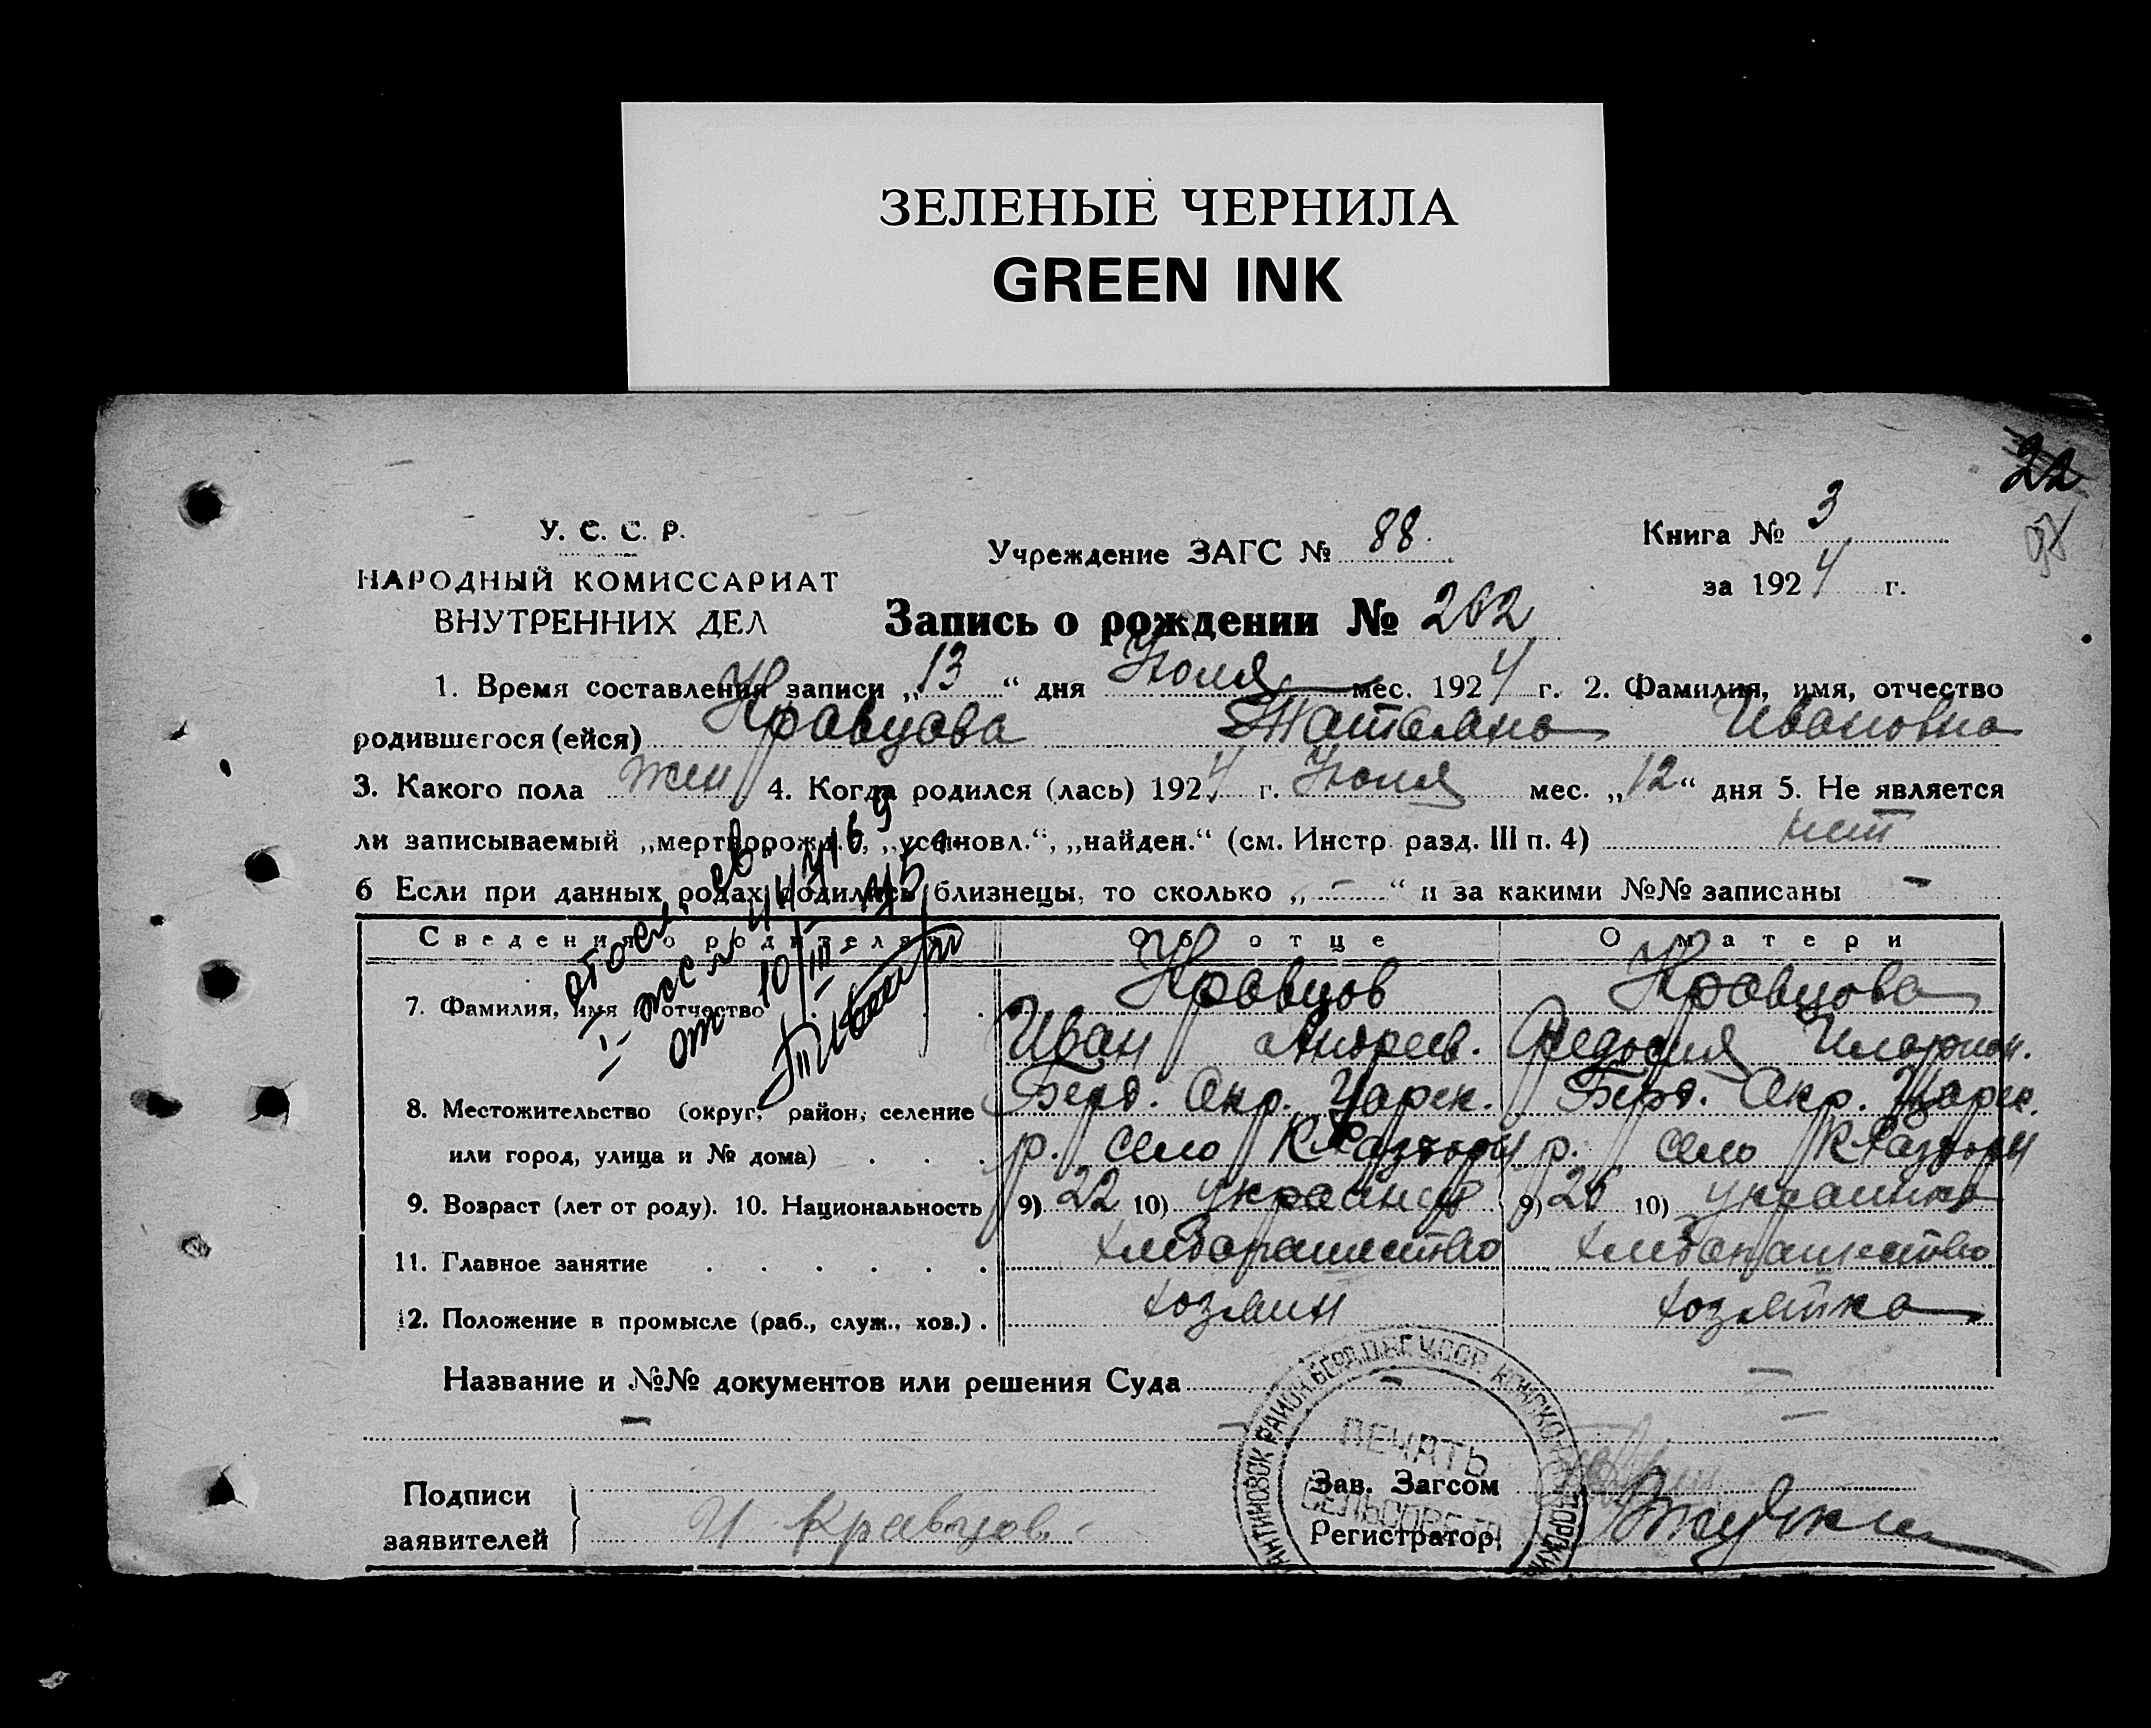 ЗЕЛЕНЫЕ ЧЕРНИЛА
GREEN INK
22
У. С. С. Р.
НАРОДНЫЙ КОМИССАРИАТ
ВНУТРЕННИХ ДЕЛ
Учреждение ЗАГС № 88.
Книга № 3
за 1924 г.
Запись о рождении № 262
1. Время составления записи „13“ дня Июля мес. 1924 г. 2. Фамилия, имя, отчество
родившегося (ейся) Кравцова Татьяна Ивановна
3. Какого пола жен 4. Когда родился (лась) 1924 г. Июля мес. „12“ дня 5. Не является
ли записываемый „мертворожд.“, „усыновл.“, „найден.“ (см. Инстр. разд. III п. 4) нет
6 Если при данных родах родились близнецы, то сколько „-“ и за какими №№ записаны -
Сведения о родителях Об отце О матери
7. Фамилия, имя и отчество Кравцов Кравцова
Иван Андреев. Федосия Иларион.
8. Местожительство (округ, район, селение Берд. Окр. Царек. Берд. Окр. Царек.
или город, улица и № дома) р. село К Раздоры р. село К Раздоры
9. Возраст (лет от роду). 10. Национальность 9) 22 10) украинец 9) 26 10) украинка
11. Главное занятие хлебопашество хлебопашество
12. Положение в промысле (раб., служ., хоз.) хозяин хозяйка
Название и №№ документов или решения Суда -
Подписи
заявителей И Кравцов
Зав. Загсом
Регистратор
ПЕЧАТЬ
СЕЛЬСОВЕТА